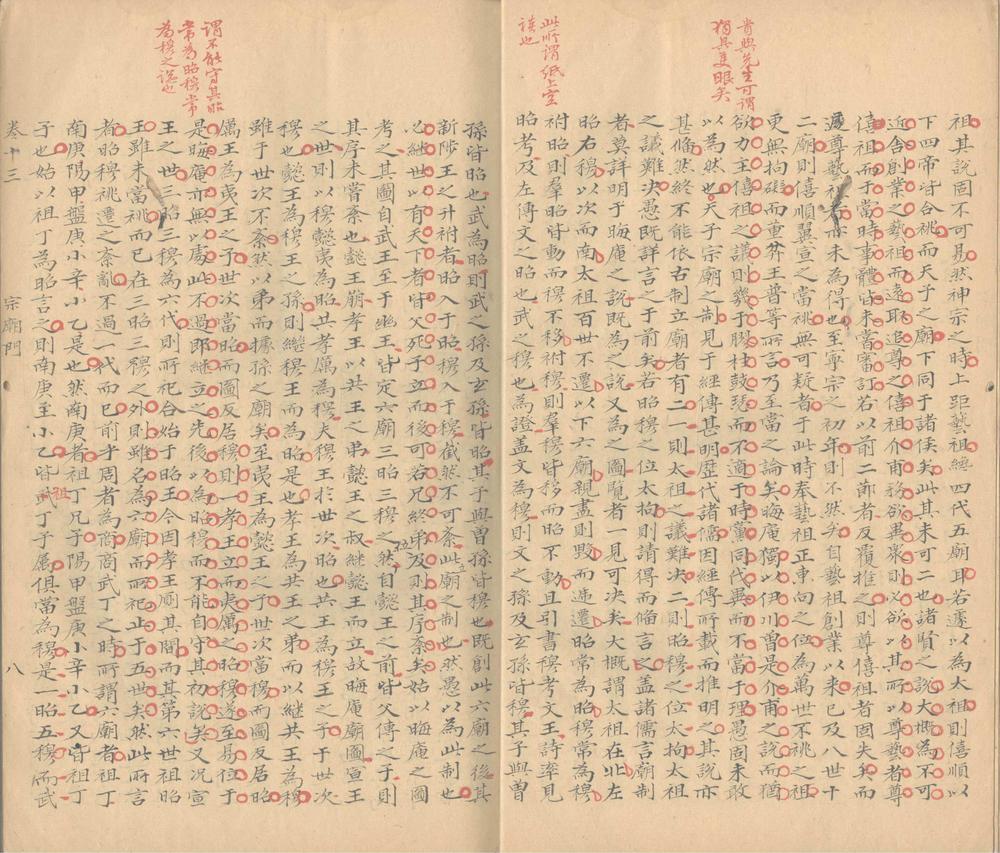 貴與先生可謂
獨具隻眼矣
此所謂紙上空
談也
祖其説固不可易然神宗之時上距藝祖纔四代五廟耳若遽以為太祖則僖順以
下四帝皆合祧而天子之廟下同于諸侯矣此其未可二也諸賢之説大概為不可
近舍創業之藝祖而遠取追尊之僖祖介甫務欲異衆則必欲以其所以尊藝者尊
僖祖而于當時事體皆未嘗審訂若以前二節者反覆推之則尊僖祖者固失矣而
遽尊藝祖者亦未為得也至寧宗之初年則不然矣自藝祖創業以来已及八世十
二廟則僖順翼宣之當祧無可疑者于此時奉藝祖正東向之位為萬世不祧之祖
更無拘礙而董棻王普等所言乃至當之論矣晦庵獨以伊川曽是介甫之説而猶
欲力主僖祖之議則幾于膠柱鼓瑟而不適于時黨同代異而不當于理愚固未敢
以為然也天子宗廟之制見于經傳甚明歷代諸儒因經傳所載而推明之其説亦
甚俻然終不能依古制立廟者有二一則太祖之議難决二則昭穆之位太拘太祖
之議難决愚既詳言之于前矣若昭穆之位太拘則請得而俻言之盖諸儒言廟制
者莫詳明于晦庵之説既為之説又為之圖覽者一見可决矣大概謂太祖在北左
昭右穆以次而南太祖百世不遷以下六廟親盡則毁而遞遷昭常為昭穆常為
祔昭則羣昭皆動而穆不移祔穆則羣穆皆移而昭不動且引書穆考文王詩率見
昭考及左傳文之昭也武之穆也為證盖文為穆則文之孫及玄孫皆穆其子與曽
謂不能守其昭
常為昭穆常
為穆之說也
孫皆昭也武為昭則武之孫及玄孫皆昭其子與曽孫皆穆也既創此六廟之後其
新陟王之升祔者昭入于昭穆入于穆截然不可紊此廟之制也然愚以為此制也
必繼世以有天下者皆父死子立而後可若兄終弟及則其序紊矣姑以晦庵之圖
考之其圖自武王至于幽王皆定六廟三昭三穆之位然自懿王之前皆父傳之子則
其序未嘗紊也懿王崩孝王以共王之弟懿王之叔継懿王而立故晦庵廟圖宣王
之世則以穆懿夷為昭共孝厲為穆夫穆王於世次昭也共王為穆王之子于世次
穆也懿王為穆王之孫則継穆王而為昭是也孝王為共王之弟而以継共王為穆
雖于世次不紊然以弟而據孫之廟矣至夷王為懿王之子世次當穆而圖反居昭
厲王為夷王之子世次當昭而圖反居穆則一孝王立而夷厲之昭穆遂至易位于
是晦庵亦無以處此不過即継立之先後以為昭穆而不能自守其初説矣又况宣
王之世三昭三穆為六代則所祀合始于昭王今因孝王廁其間而其第六世祖昭
王雖未當祧而已在三昭三穆之外則雖名為六廟而所祀止于五世矣然此所言
者昭穆祧遷之紊亂不過一代而已前乎周者為商商武丁之時所謂六廟者祖丁
南庚陽甲盤庚小辛小乙是也然南庚者祖丁兄子陽甲盤庚小辛小乙又皆祖丁
子也姑以祖丁為昭言之則南庚至小乙皆祖丁子屬俱當為穆是一昭五穆而武
卷十三
宗廟門
八